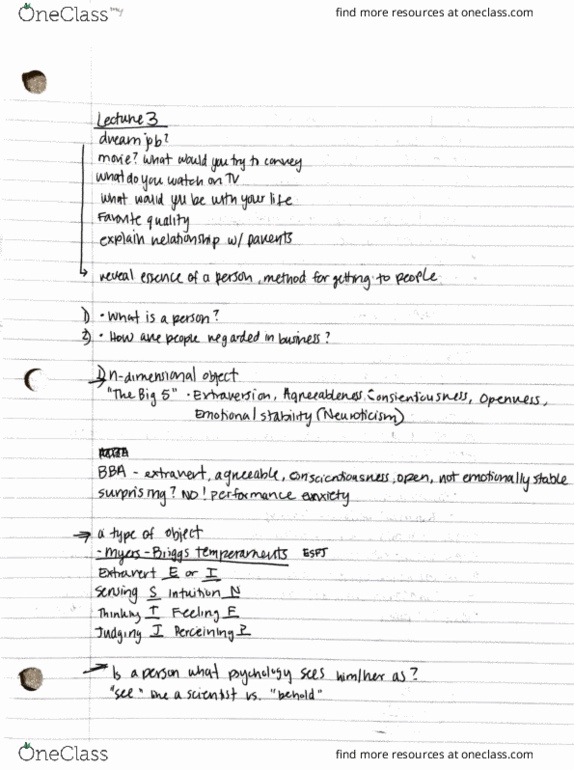 OneClass
find more resources at oneclass.com
Lecture 3
dream job?
movie? what would you try to convey
what do you watch on TV
what would you be with your life
Favorite quality
explain relationship w/ parents
reveal essence of a person, method for getting to people
1) • What is a person?
2) • How are people regarded in business?
1) n-dimensional object
"The Big 5" • Extraversion, Agreeableness, Consienticusness, Openness,
Emotional stability (Neuroticism)
BBA - extravert, agreeable, consciantiousness, open, not emotionally stable
surprising? NO! performance anxiety
→ a type of object
- Myers-Briggs temperaments ESFJ
Extravert E or I
Sensing S Intuition N
Thinking T Feeling F
Judging J Perceining P
→ Is a person what psychology sees him/her as?
"see" like a scientist vs. "behold"
OneClass
find more resources at oneclass.com